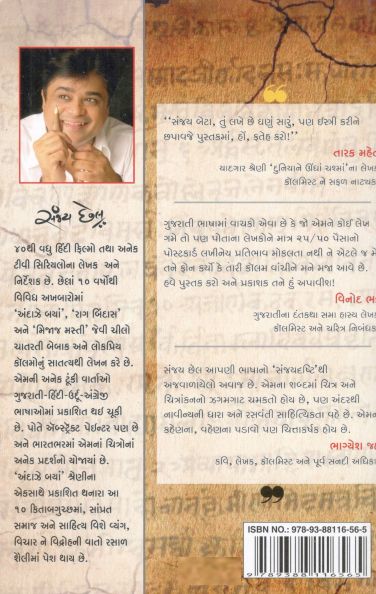 સંજય છેલ
૪૦થી વધુ હિંદી ફિલ્મો તથા અનેક
ટીવી સિરિયલોના લેખક અને
નિર્દેશક છે. છેલાં ૧૦ વર્ષોથી
વિવિધ અખબારોમાં
'અંદાઝે બયાં', 'રાગ બિંદાસ'
અને 'મિજાજ મસ્તી' જેવી ચીલો
ચાતરતી બેબાક અને લોકપ્રિય
કૉલમોનું સાતત્યથી લેખન કરે છે.
એમની અનેક ટૂંકી વાર્તાઓ
ગુજરાતી-હિંદી-ઉર્દૂ-અંગ્રેજી
ભાષાઓમાં પ્રકાશિત થઇ ચૂકી
છે. પોતે ઍબ્સ્ટ્રૅક્ટ પેઈન્ટર પણ છે
અને ભારતભરમાં એમનાં ચિત્રોનાં
અનેક પ્રદર્શનો યોજાયાં છે.
'અંદાઝે બયાં' શ્રેણીના
એકસાથે પ્રકાશિત થનારા આ
૧૦ કિતાબગુચ્છમાં, સાંપ્રત
સમાજ અને સાહિત્ય વિશે વ્યંગ,
વિચાર ને વિદ્રોહની વાતો રસાળ
શૈલીમાં પેશ થાય છે.
"સંજય બેટા, તું લખે છે ઘણું સારું, પણ ઈસ્ત્રી કરીને
છપાવજે પુસ્તકમાં, હોં, ફતેહ કરો!"
તારક મહેતા
યાદગાર શ્રેણી 'દુનિયાને ઊંધાં ચશ્માં'ના લેખક
કૉલમિસ્ટ ને સફળ નાટ્યકાર
ગુજરાતી ભાષામાં વાચકો એવા છે કે જો એમને કોઈ લેખ
ગમે તો પણ પોતાના લેખકોને માત્ર ૨૫/૫૦ પૈસાનો
પોસ્ટકાર્ડ લખીનેય પ્રતિભાવ મોકલતા નથી ને એટલે જ મેં
તને ફોન કર્યો કે તારી કૉલમ વાંચીને મને મજા આવે છે.
હવે પુસ્તક કરો અને પ્રકાશક તને હું અપાવીશ!
વિનોદ
ગુજરાતીના દંતકથા સમા હાસ્ય લેખક
કૉલમિસ્ટ અને ચરિત્ર નિબંધકાર
સંજય છેલ આપણી ભાષાનો 'સંજયદષ્ટિ'થી
અજવાળાયેલો અવાજ છે. એમના શબ્દમાં ચિત્ર અને
ચિત્રાંકનનો ઝગમગાટ ચમકતો હોય છે, પણ અંદરથી
નાવીન્યની ધારા અને રસવંતી સાહિત્યિકતા વહે છે. એમના
કહેણના, વહેણના પડાવો પણ ચિત્તાકર્ષક હોય છે.
ભાગ્યેશ
કવિ, લેખક, કૉલમિસ્ટ અને પૂર્વ સનદી અધિકારી
ISBN NO: 978-93-88116-56-5
9789388116565